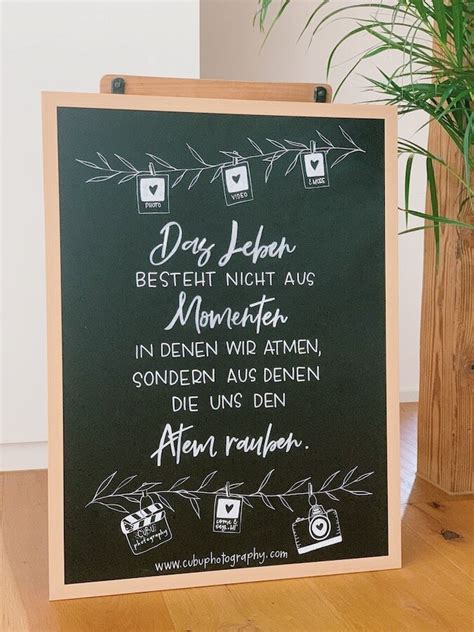 PHOTO
VIDEO
& MORE
Das Leben
BESTEHT NICHT AUS
Momenten
IN DENEN WIR ATMEN,
SONDERN AUS DENEN
DIE UNS DEN
Atem rauben.
CUBU
photography
come &
say hi!
www.cubuphotography.com